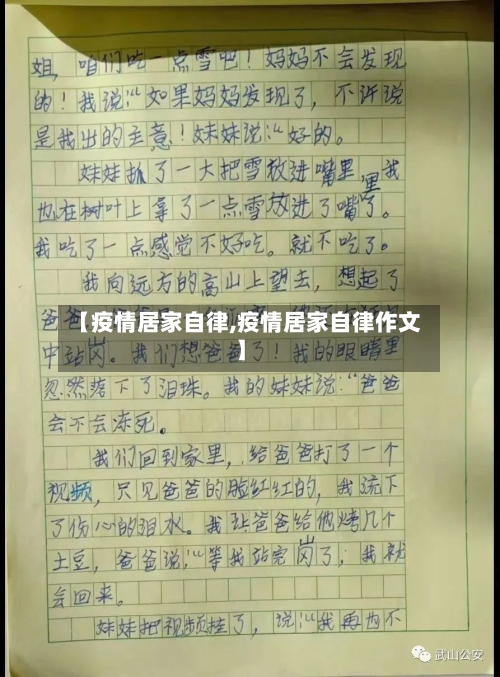 姐，咱们吃一点雪吧！妈妈不会发现
的！我说：“如果妈妈发现了，不许说
是我出的主意！妹妹说：“好的。
妹妹抓了一大把雪放进嘴里，我
也在树叶上拿了一点雪放进了嘴里了。
我吃了一点感觉不好吃。就不吃了。
我向远方的高山上望去，想起了
爸爸
【疫情居家自律,疫情居家自律作文
】
中站岗。我们想爸爸了！我的眼睛里
忽然落下了泪珠。我的妹妹说：“爸爸
会不会冻死。
我们回到家里，给爸爸打了一个
视频，只见爸爸的脸红红的，我流下
了伤心的泪水。我让爸爸给他烤几个
土豆，爸爸说：“等我站完岗了；我就
会回来。
妹妹把视频挂了，说：“我再也不
武山公安